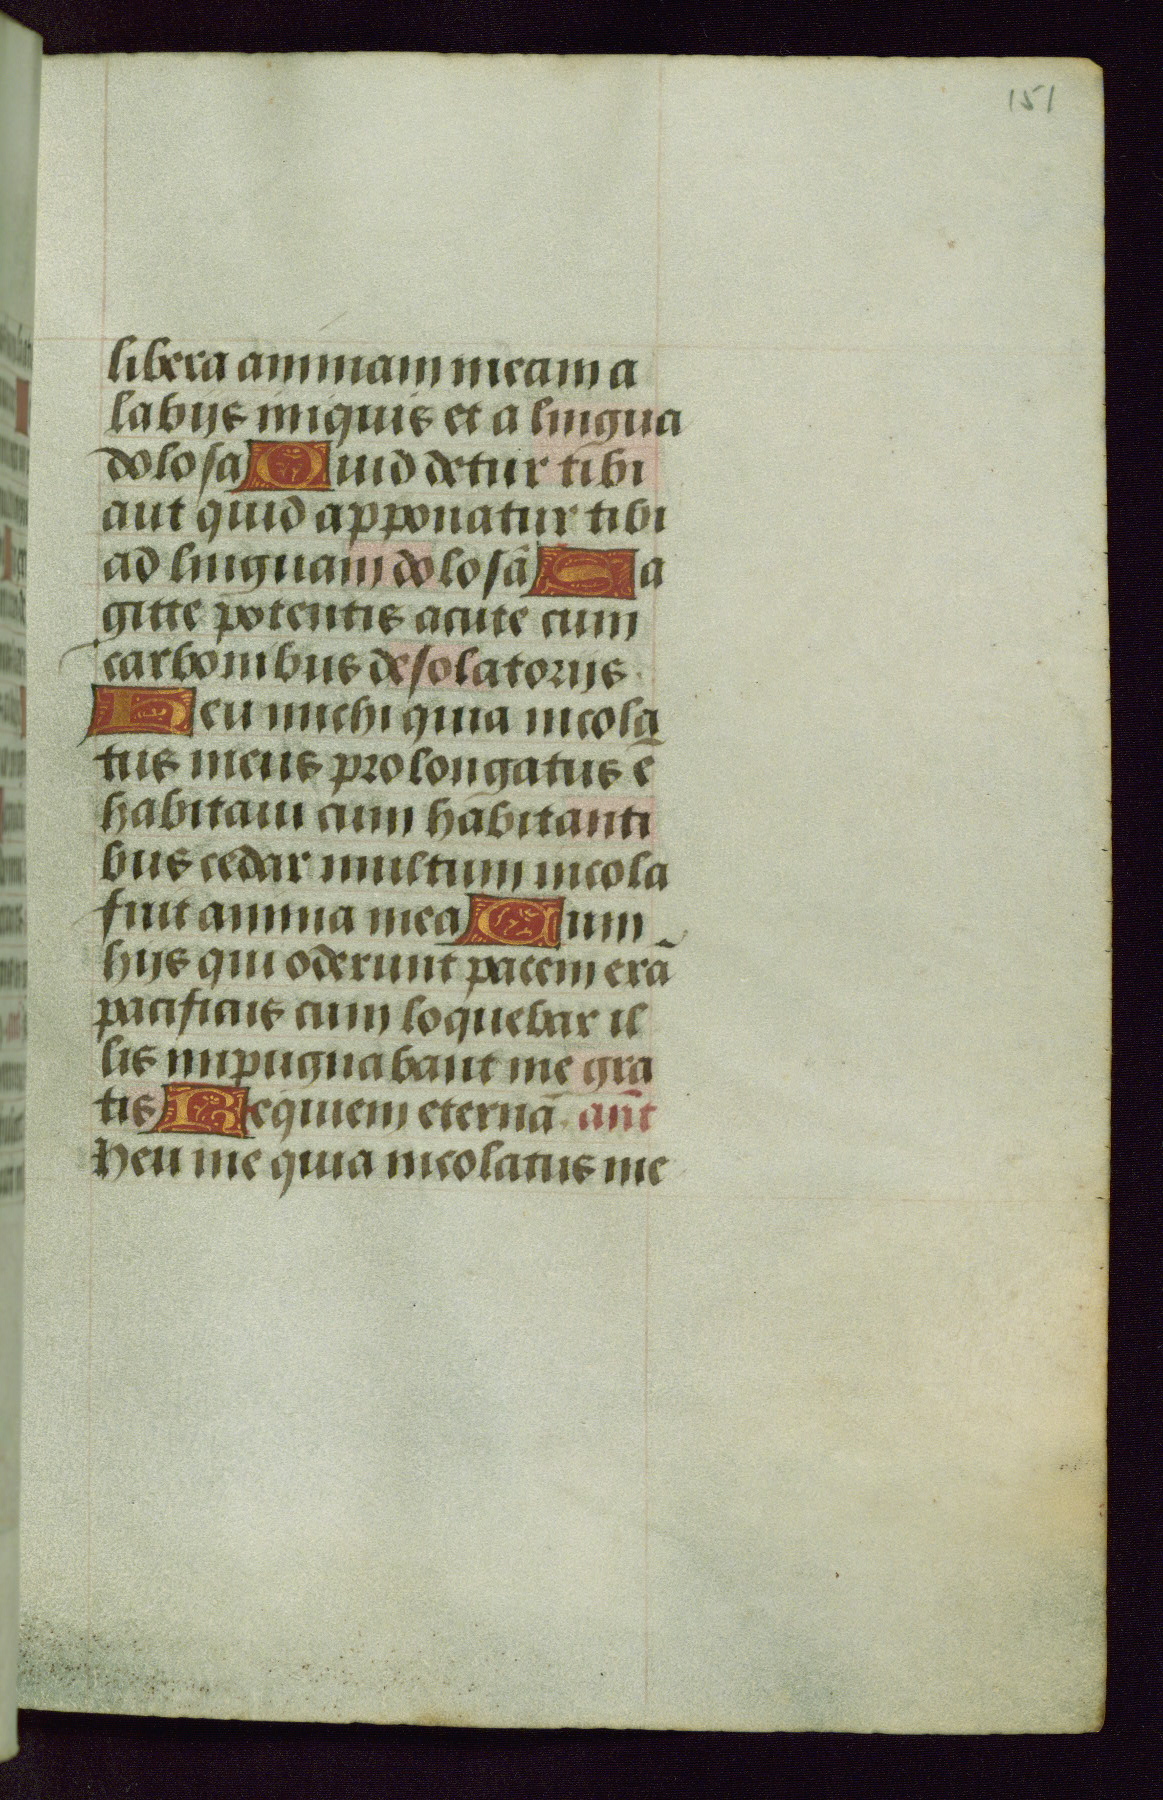 151
libera animam meam a
labijs iniquis et a lingua
dolosa Quid detur tibi
aut quid apponatur tibi
ad linguam dolosã Sa
gitte potentis acute cum
carbonibus desolatorijs
Heu michi quia incola
tus meus prolongatus ẽ
habitaui cum habitanti
bus cedar multum incola
fuit anima mea Cum
hijs qui oderunt pacem erã
pacificus cum loquebar il
lis inpugnabant me gra
tis Requiem eternã. añt
Heu me quia incolatus me